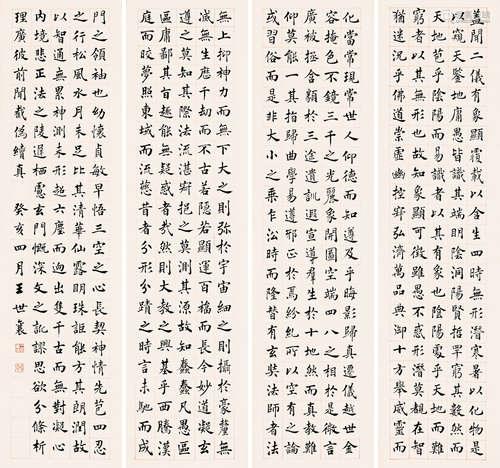 蓋聞二儀有象顯覆載以含生四時無形潛寒暑以化物是
以窺天鑒地庸愚皆識其端明陰洞陽賢哲罕窮其數然而
天地苞乎陰陽而易識者以其有象也陰陽處乎天地而難
窮者以其無形也故知象顯可徵雖愚不惑形潛莫覩在智
猶迷況乎佛道崇虛幽控寂弘濟萬品典御十方舉威靈而
無上抑神力而無下大之則弥於宇宙細之則攝於豪釐無
滅無生歷千劫而不古若隱若顯運百福而長今妙道凝玄
遵之莫知其際法流湛寂挹之莫測其源故知蠢蠢凡愚區
區庸鄙其旨趣能無疑惑然則大教之興基乎西土騰漢
庭而皎夢照東域而流慈昔者分形分蹟之時言未馳而成
化當常現常世人仰德而知遵及乎晦影歸真遷儀越世金
容掩色不鏡三千之光麗象開圖空端四八之相於是微言
廣被拯含類於三途遺訓遐宣導群生於十地然而真教難
仰莫能一其指歸曲學易遵邪正於焉紛糾所以空有之論
或習俗而是非大小之乘乍沿時而隆替有玄奘法師者法
門之領袖也幼懷貞敏早悟三空之心長契神情先苞四忍
之行松風水月未足比其清華仙露明珠詎能方其朗潤故
以智通無累神測未形超六塵而迥出隻千古而無對凝心
內境悲正法之陵遲栖慮玄門慨深文之訛謬思欲分條析
理廣彼前聞截偽續真 癸亥四月王世襄